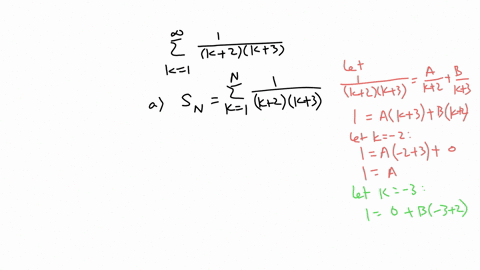 ∞
∑ 1/((k+2)(k+3))
k=1
a) S_N = ∑_{k=1}^{N} 1/((k+2)(k+3))
Let
1/((k+2)(k+3)) = A/(k+2) + B/(k+3)
1 = A(k+3) + B(k+2)
Let k=-2:
1 = A(-2+3) + 0
1 = A
Let k=-3:
1 = 0 + B(-3+2)